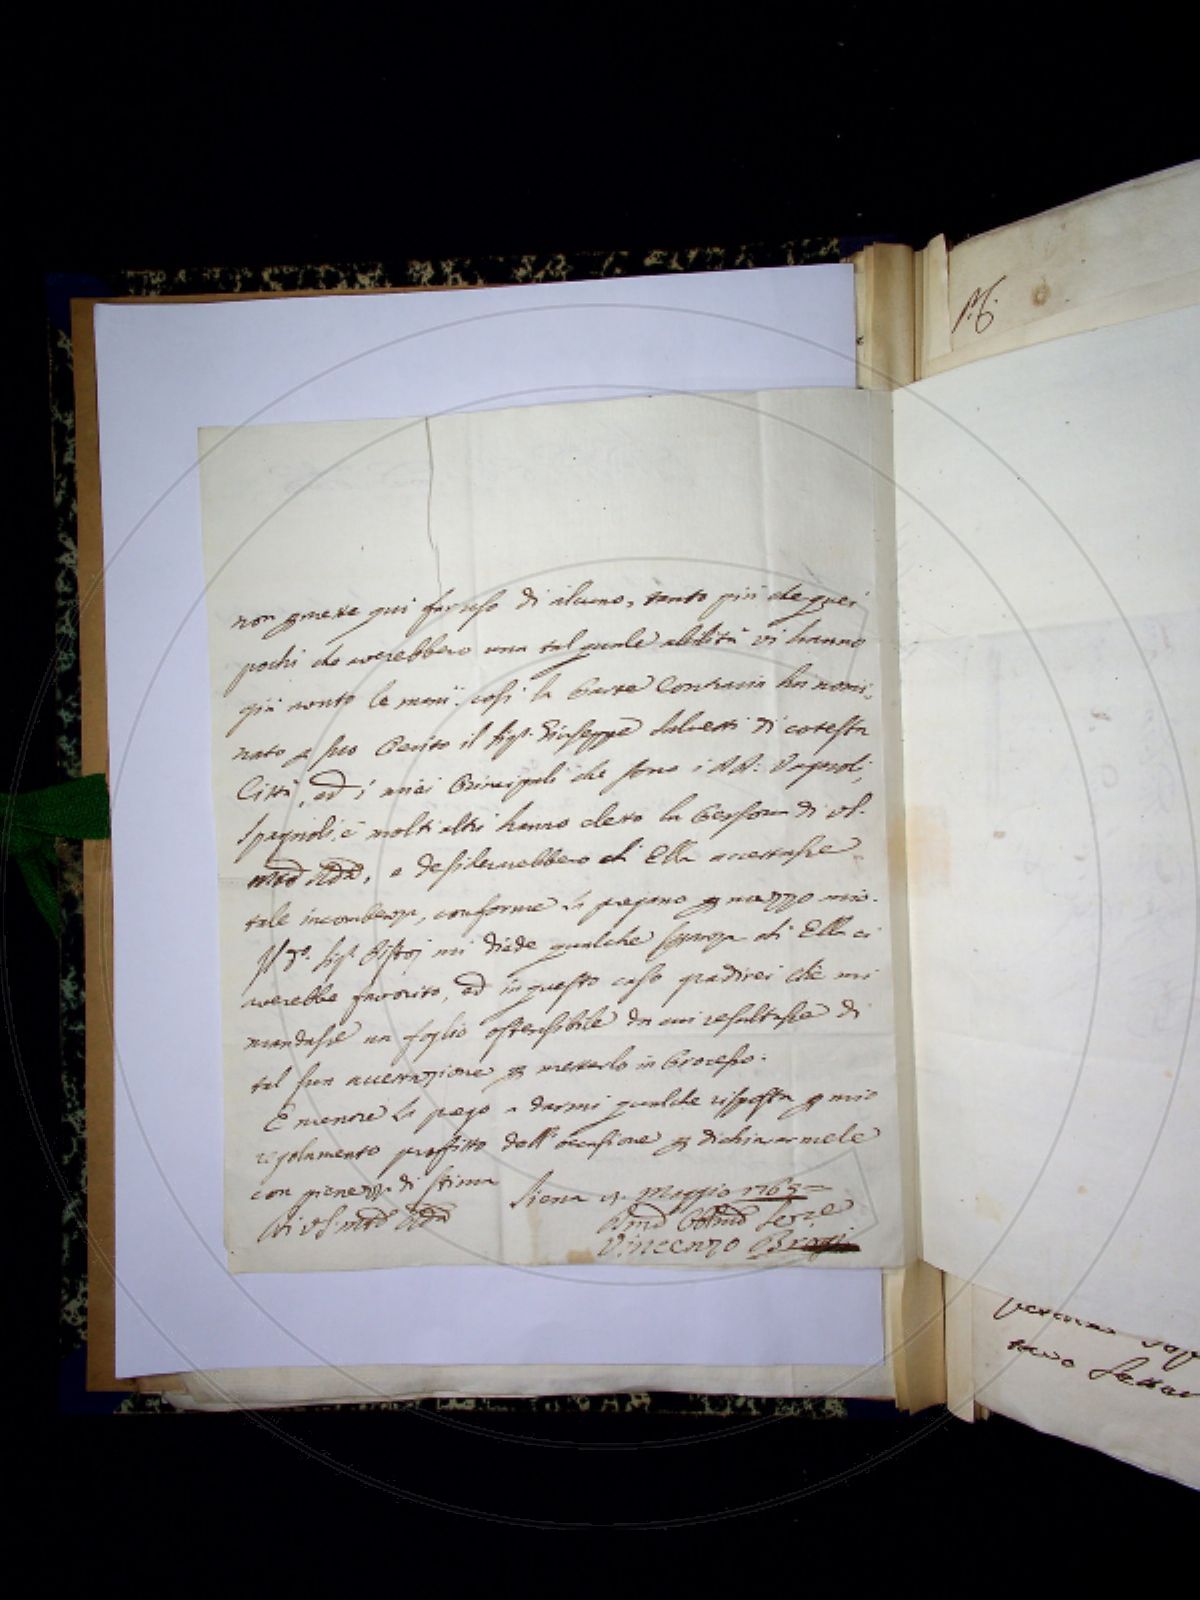 non premere qui far uso di alcuno, tanto più che quei
pochi che averebbero una tal quale abilità vi hanno
già avuto le mani. così la Parte Contraria ha nomi=
nato p suo Perito il Sig.r Giuseppe Salvetti di cotesta
Città, ed i miei Principali che sono i RR:
Spagnoli, e molti altri hanno eletto la Persona di VS.
a desidererebbero ch Ella accettasse
tale incombenza, conforme La pregano p mezzo mio.
Il do. Sig.r Pistoj mi diede qualche speranza ch Ella ci
averebbe favorito, ed in questo caso gradirei che mi
mandasse un foglio ostensibile da cui resultasse di
tal sua accettazione p metterlo in Processo.
E mentre La prego a darmi qualche risposta p mio
regolamento profitto dell'occasione p dichiararmele
con pienezza di stima
Siena Maggio 1765=
Di VS.
Vincenzo